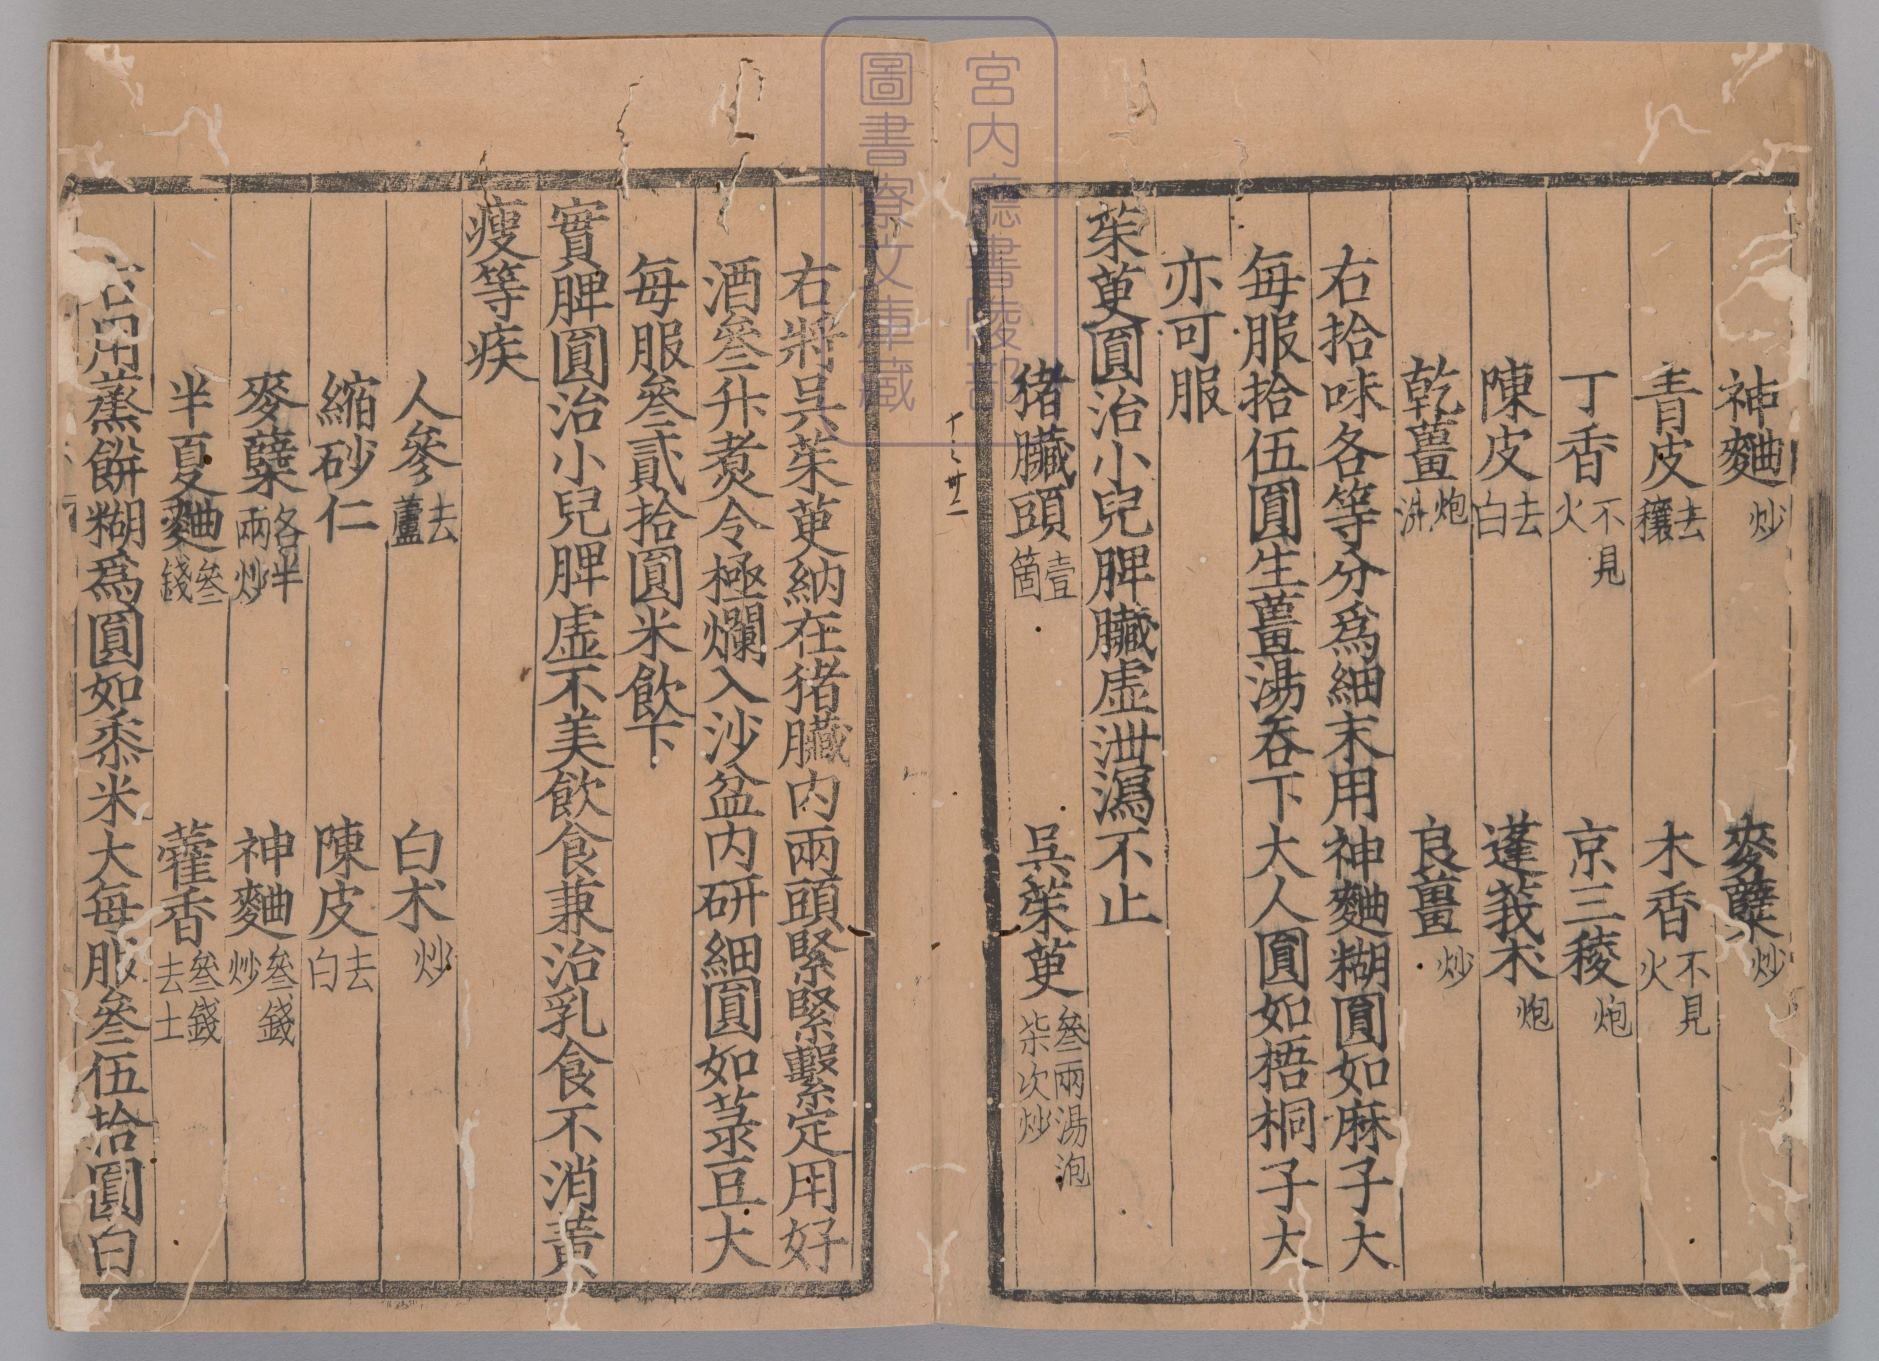 神麯炒 麥蘖炒
青皮去穰 木香不見火
丁香不見火 京三稜炮
陳皮去白 蓬莪朮炮
乾薑炮洗 良薑炒
右拾味各等分爲細末用神麯糊圓如麻子大
每服拾伍圓生薑湯吞下大人圓如梧桐子大
亦可服
茱萸圓治小兒脾臟虛泄瀉不止
猪臟頭壹箇 吳茱萸叄兩湯泡柒次炒
右將吳茱萸納在猪臟內兩頭緊緊繫定用好
酒叄升煮令極爛入沙盆內研細圓如菉豆大
每服叄貳拾圓米飲下
實脾圓治小兒脾虛不美飲食兼治乳食不消黃
瘦等疾
人參去蘆 白朮炒
縮砂仁 陳皮去白
麥蘖各半兩炒 神麯叄錢炒
半夏麯叄錢 藿香叄錢去土
右用蒸餅糊爲圓如黍米大每服叄伍拾圓白
宮內廳書陵部
圖書寮文庫藏